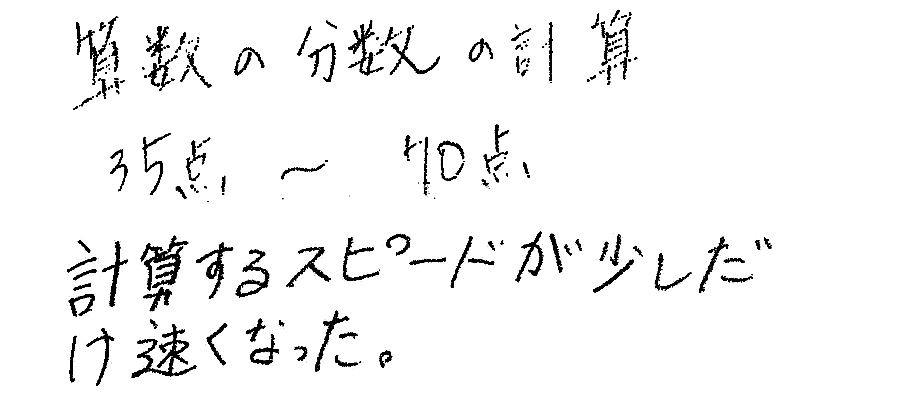 算数の分数の計算
35点 ～ 70点
計算するスピードが少しだ
け速くなった。